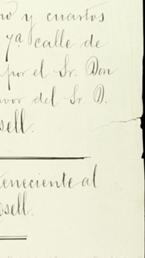 y cuartos
7ª calle de
por el Sr. Don
vor del Sr. D.
sell.
teneciente al
osell.